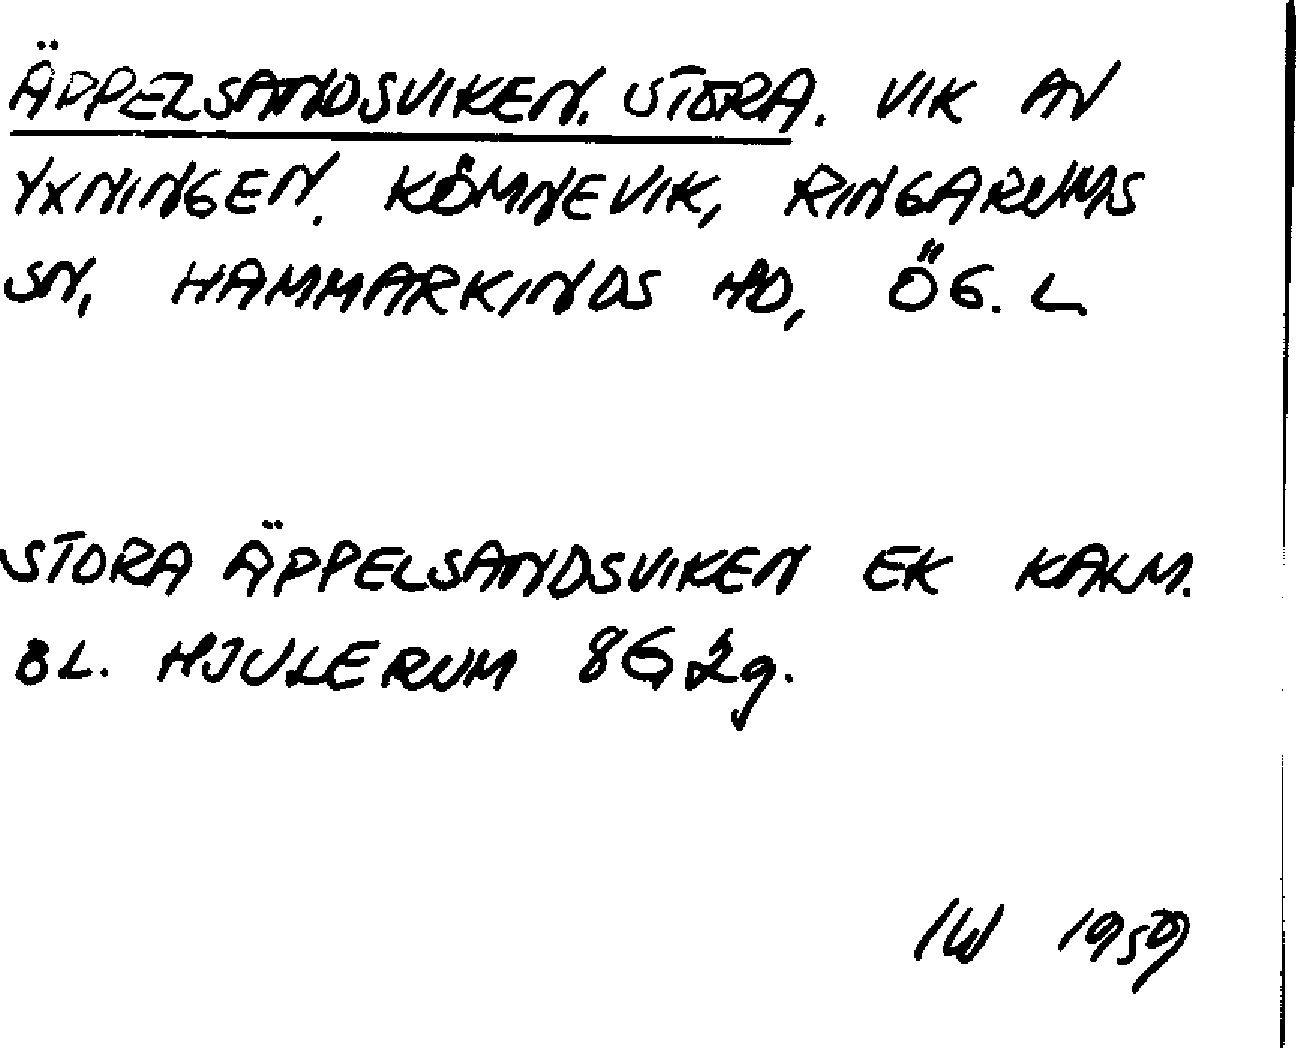 ÄPPELSANDSVIKEN, STORA. VIK AV
YXNINGEN. KÖMNEVIK, RINGARUMS
SN, HAMMARKINDS HD, ÖG. L
STORA ÄPPELSANDSVIKEN EK KALM.
BL. HJULERUM 8G2g.
IW 1959